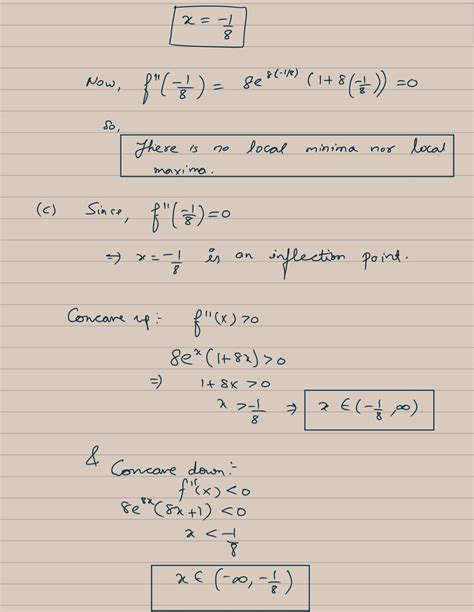 x = -1/8
Now, f"(-1/8) = 8e^8(-1/8) (1+8(-1/8)) = 0
So,
There is no local minima nor local
maxima.
(c) Since, f"(-1/8) = 0
⇒ x = -1/8 is an inflection point.
Concave up:- f"(x) > 0
8e^x (1+8x) > 0
⇒) 1+8x > 0
x > -1/8 ⇒ x ∈ (-1/8, ∞)
& Concave down:-
f"(x) < 0
8e^8x (8x+1) < 0
x < -1/8
x ∈ (-∞, -1/8)